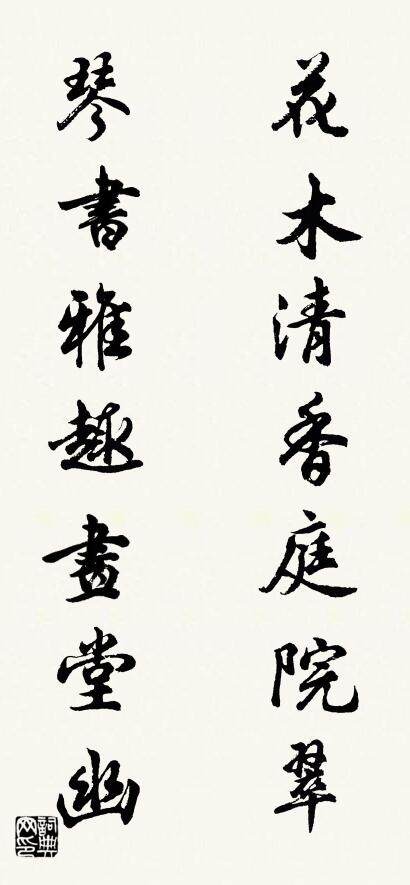 花木清香庭院翠
琴書雅趣畫堂幽
詞典网印